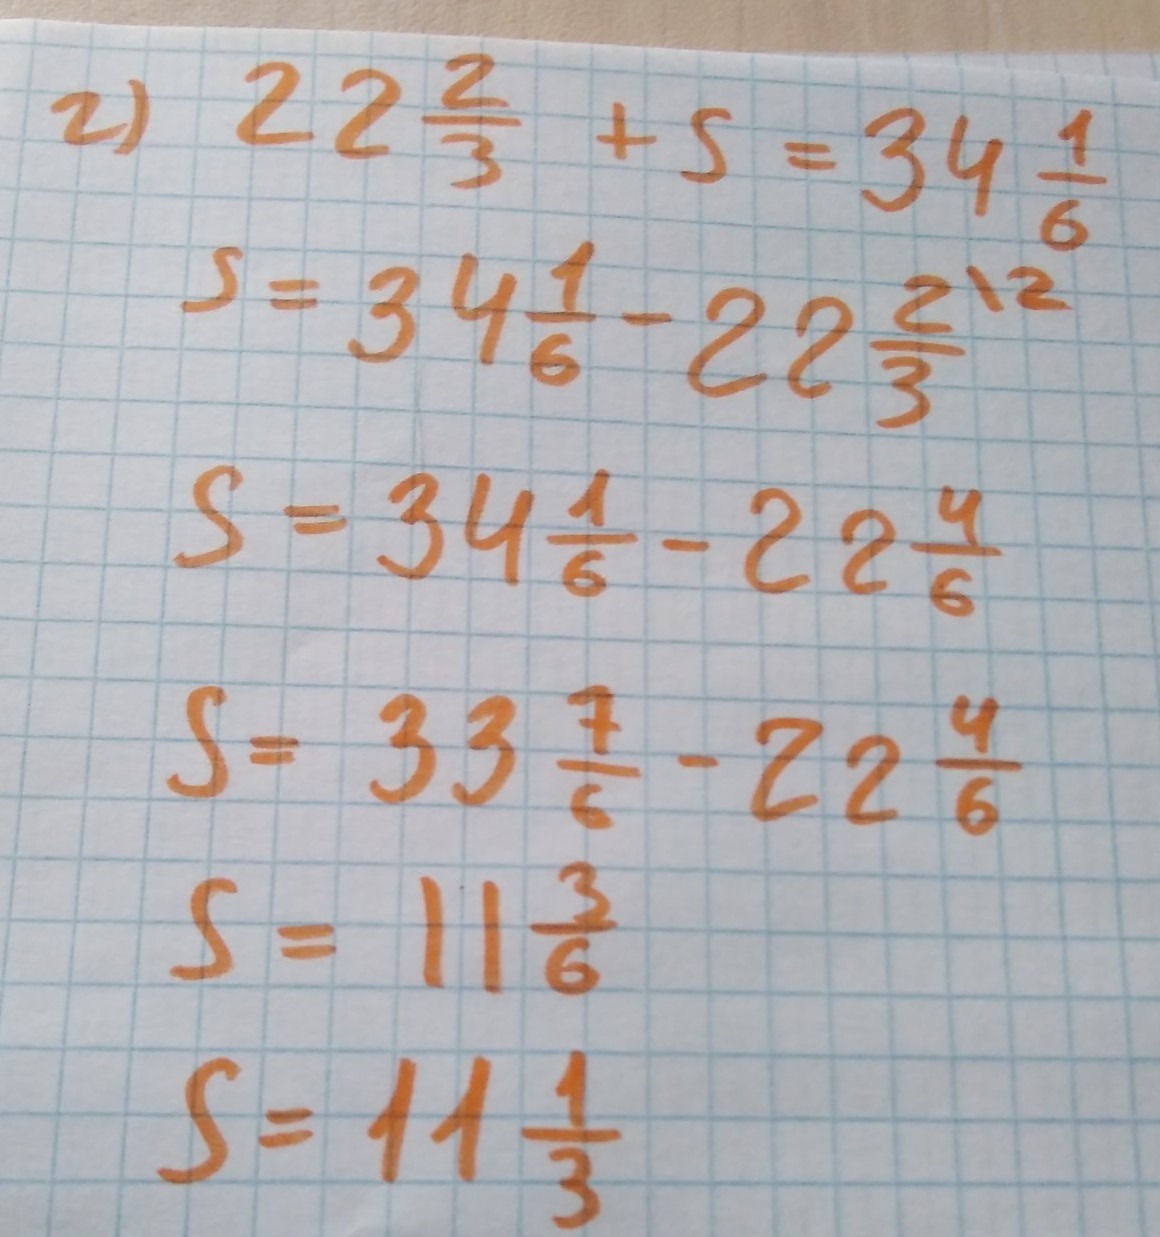 2) 22 2/3 + S = 34 1/6
S = 34 1/6 - 22 2/3 \2
S = 34 1/6 - 22 4/6
S = 33 7/6 - 22 4/6
S = 11 3/6
S = 11 1/3